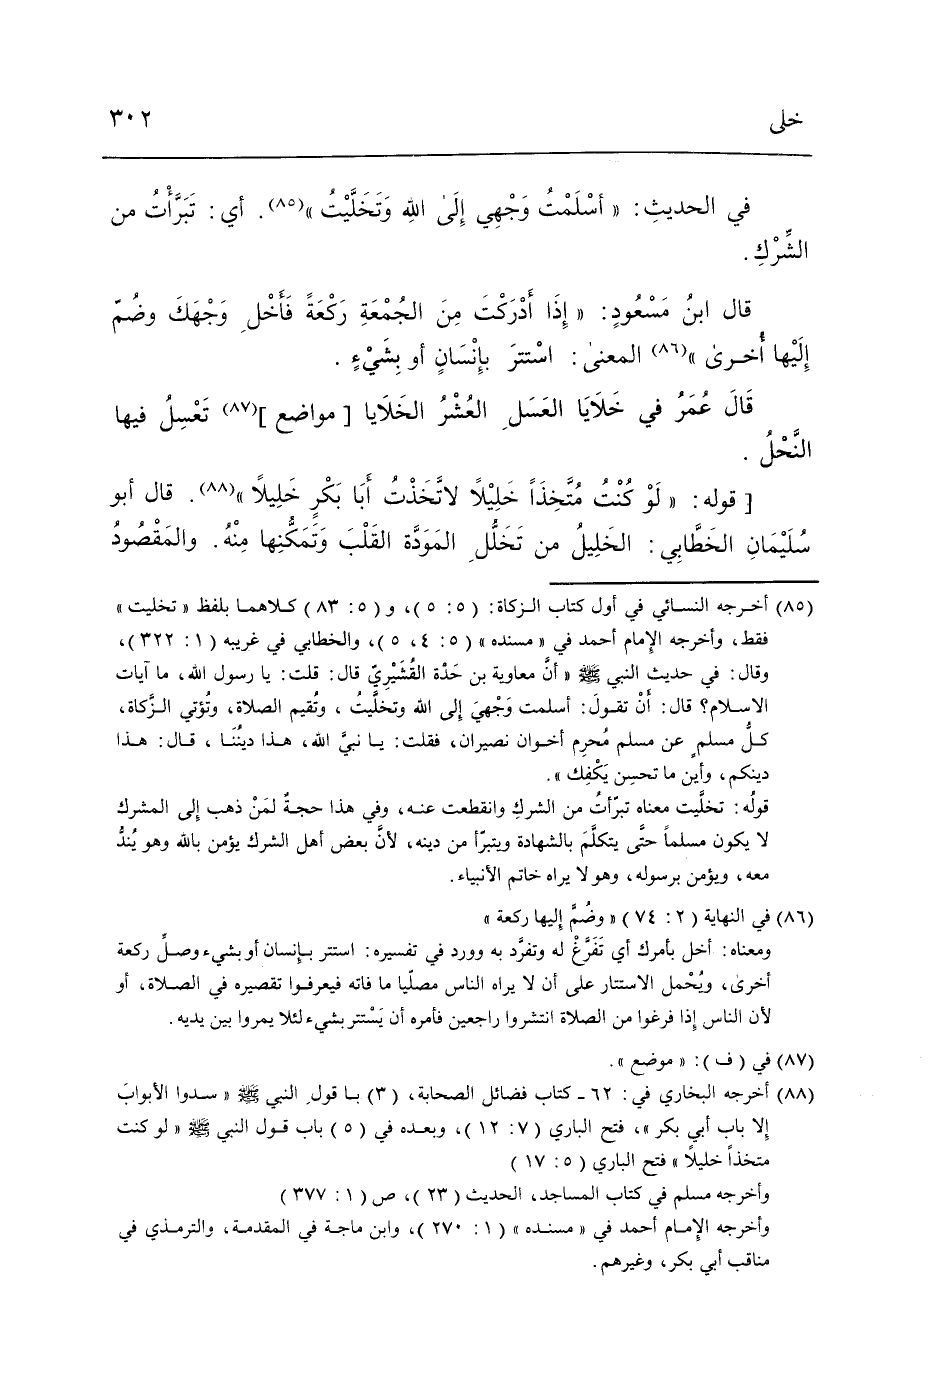 خلى
٣٠٢
في الحديثِ: « أسْلَمْتُ وَجْهِي إِلَىٰ اللهِ وَتَخَلَّيْتُ »(٨٥). أي: تَبَرَّأْتُ من
الشِّرْكِ.
قال ابنُ مَسْعُودٍ: « إِذَا أَدْرَكْتَ مِنَ الجُمْعَةِ رَكْعَةً فَأَخْلِ وَجْهَكَ وضُمّ
إِلَيْها أُخرىٰ »(٨٦) المعنىٰ: اسْتترَ بإِنْسَانٍ أو بِشَيْءٍ.
قَالَ عُمَرُ في خَلَايَا العَسَلِ العُشْرُ الخَلَايا [ مواضع ](٨٧) تَعْسِلُ فيها
النَّحْلُ.
[ قوله: « لَوْ كُنْتُ مُتَّخِذَاً خَلِيْلًا لاتَّخَذْتُ أَبَا بَكْرٍ خَلِيلًا »(٨٨). قال أبو
سُلَيْمَانِ الخَطَّابِي: الخَلِيلُ من تَخَلُّلِ المَوَدَّة القَلْبَ وَتَمَكُّنِها مِنْهُ. والمَقْصُودُ
(٨٥) أخرجه النسائي في أول كتاب الزكاة: ( ٥: ٥ )، و ( ٥: ٨٣ ) كلاهما بلفظ « تخليت »
فقط، وأخرجه الإمام أحمد في « مسنده » ( ٥: ٤، ٥ )، والخطابي في غريبه ( ١: ٣٢٢ )،
وقال: في حديث النبي ﷺ « أنَّ معاوية بن حَدْة القُشَيْرِيّ قال: قلت: يا رسول الله، ما آيات
الاسلام؟ قال: أَنْ تقولَ: أسلمت وَجْهيَ إلى الله وتخلَّيتُ، وتُقيم الصلاة، وتُؤتي الزَّكاة،
كلُّ مسلمٍ عن مسلم مُحرم أخوان نصيران، فقلت: يا نبيَّ الله، هذا ديننَا، قال: هذا
دينكم، وأين ما تحسِن يَكْفِك ».
قولُه: تخلَّيت معناه تبرّأتُ من الشركِ وانقطعت عنه، وفي هذا حجةٌ لمَنْ ذهب إلى المشرك
لا يكون مسلماً حتَّى يتكلَّمَ بالشهادة ويتبرّأ من دينه، لأنَّ بعض أهل الشرك يؤمن بالله وهو يُندُّ
معه، ويؤمن برسوله، وهو لا يراه خاتم الأنبياء.
(٨٦) في النهاية ( ٢: ٧٤ ) « وضُمَّ إليها ركعة »
ومعناه: أخل بأمرك أي تَفَرَّغْ له وتفرَّد به وورد في تفسيره: استتر بإنسان أو بشيء وصلِّ ركعة
أخرىٰ، ويُحْمل الاستتار على أن لا يراه الناس مصلّيا ما فاته فيعرفوا تقصيره في الصلاة، أو
لأن الناس إذا فرغوا من الصلاة انتشروا راجعين فأمره أن يَسْتتر بشيء لئلا يمروا بين يديه.
(٨٧) في ( ف ): « موضع ».
(٨٨) أخرجه البخاري في: ٦٢ ـ كتاب فضائل الصحابة، (٣) با قولِ النبي ﷺ « سدوا الأبوابَ
إلا باب أبي بكر »، فتح الباري ( ٧: ١٢ )، وبعده في ( ٥ ) باب قول النبي ﷺ « لو كنت
متخذاً خليلًا » فتح الباري ( ٥: ١٧ )
وأخرجه مسلم في كتاب المساجد، الحديث ( ٢٣ )، ص ( ١: ٣٧٧ )
وأخرجه الإمام أحمد في « مسنده » ( ١: ٢٧٠ )، وابن ماجة في المقدمة، والترمذي في
مناقب أبي بكر، وغيرهم.